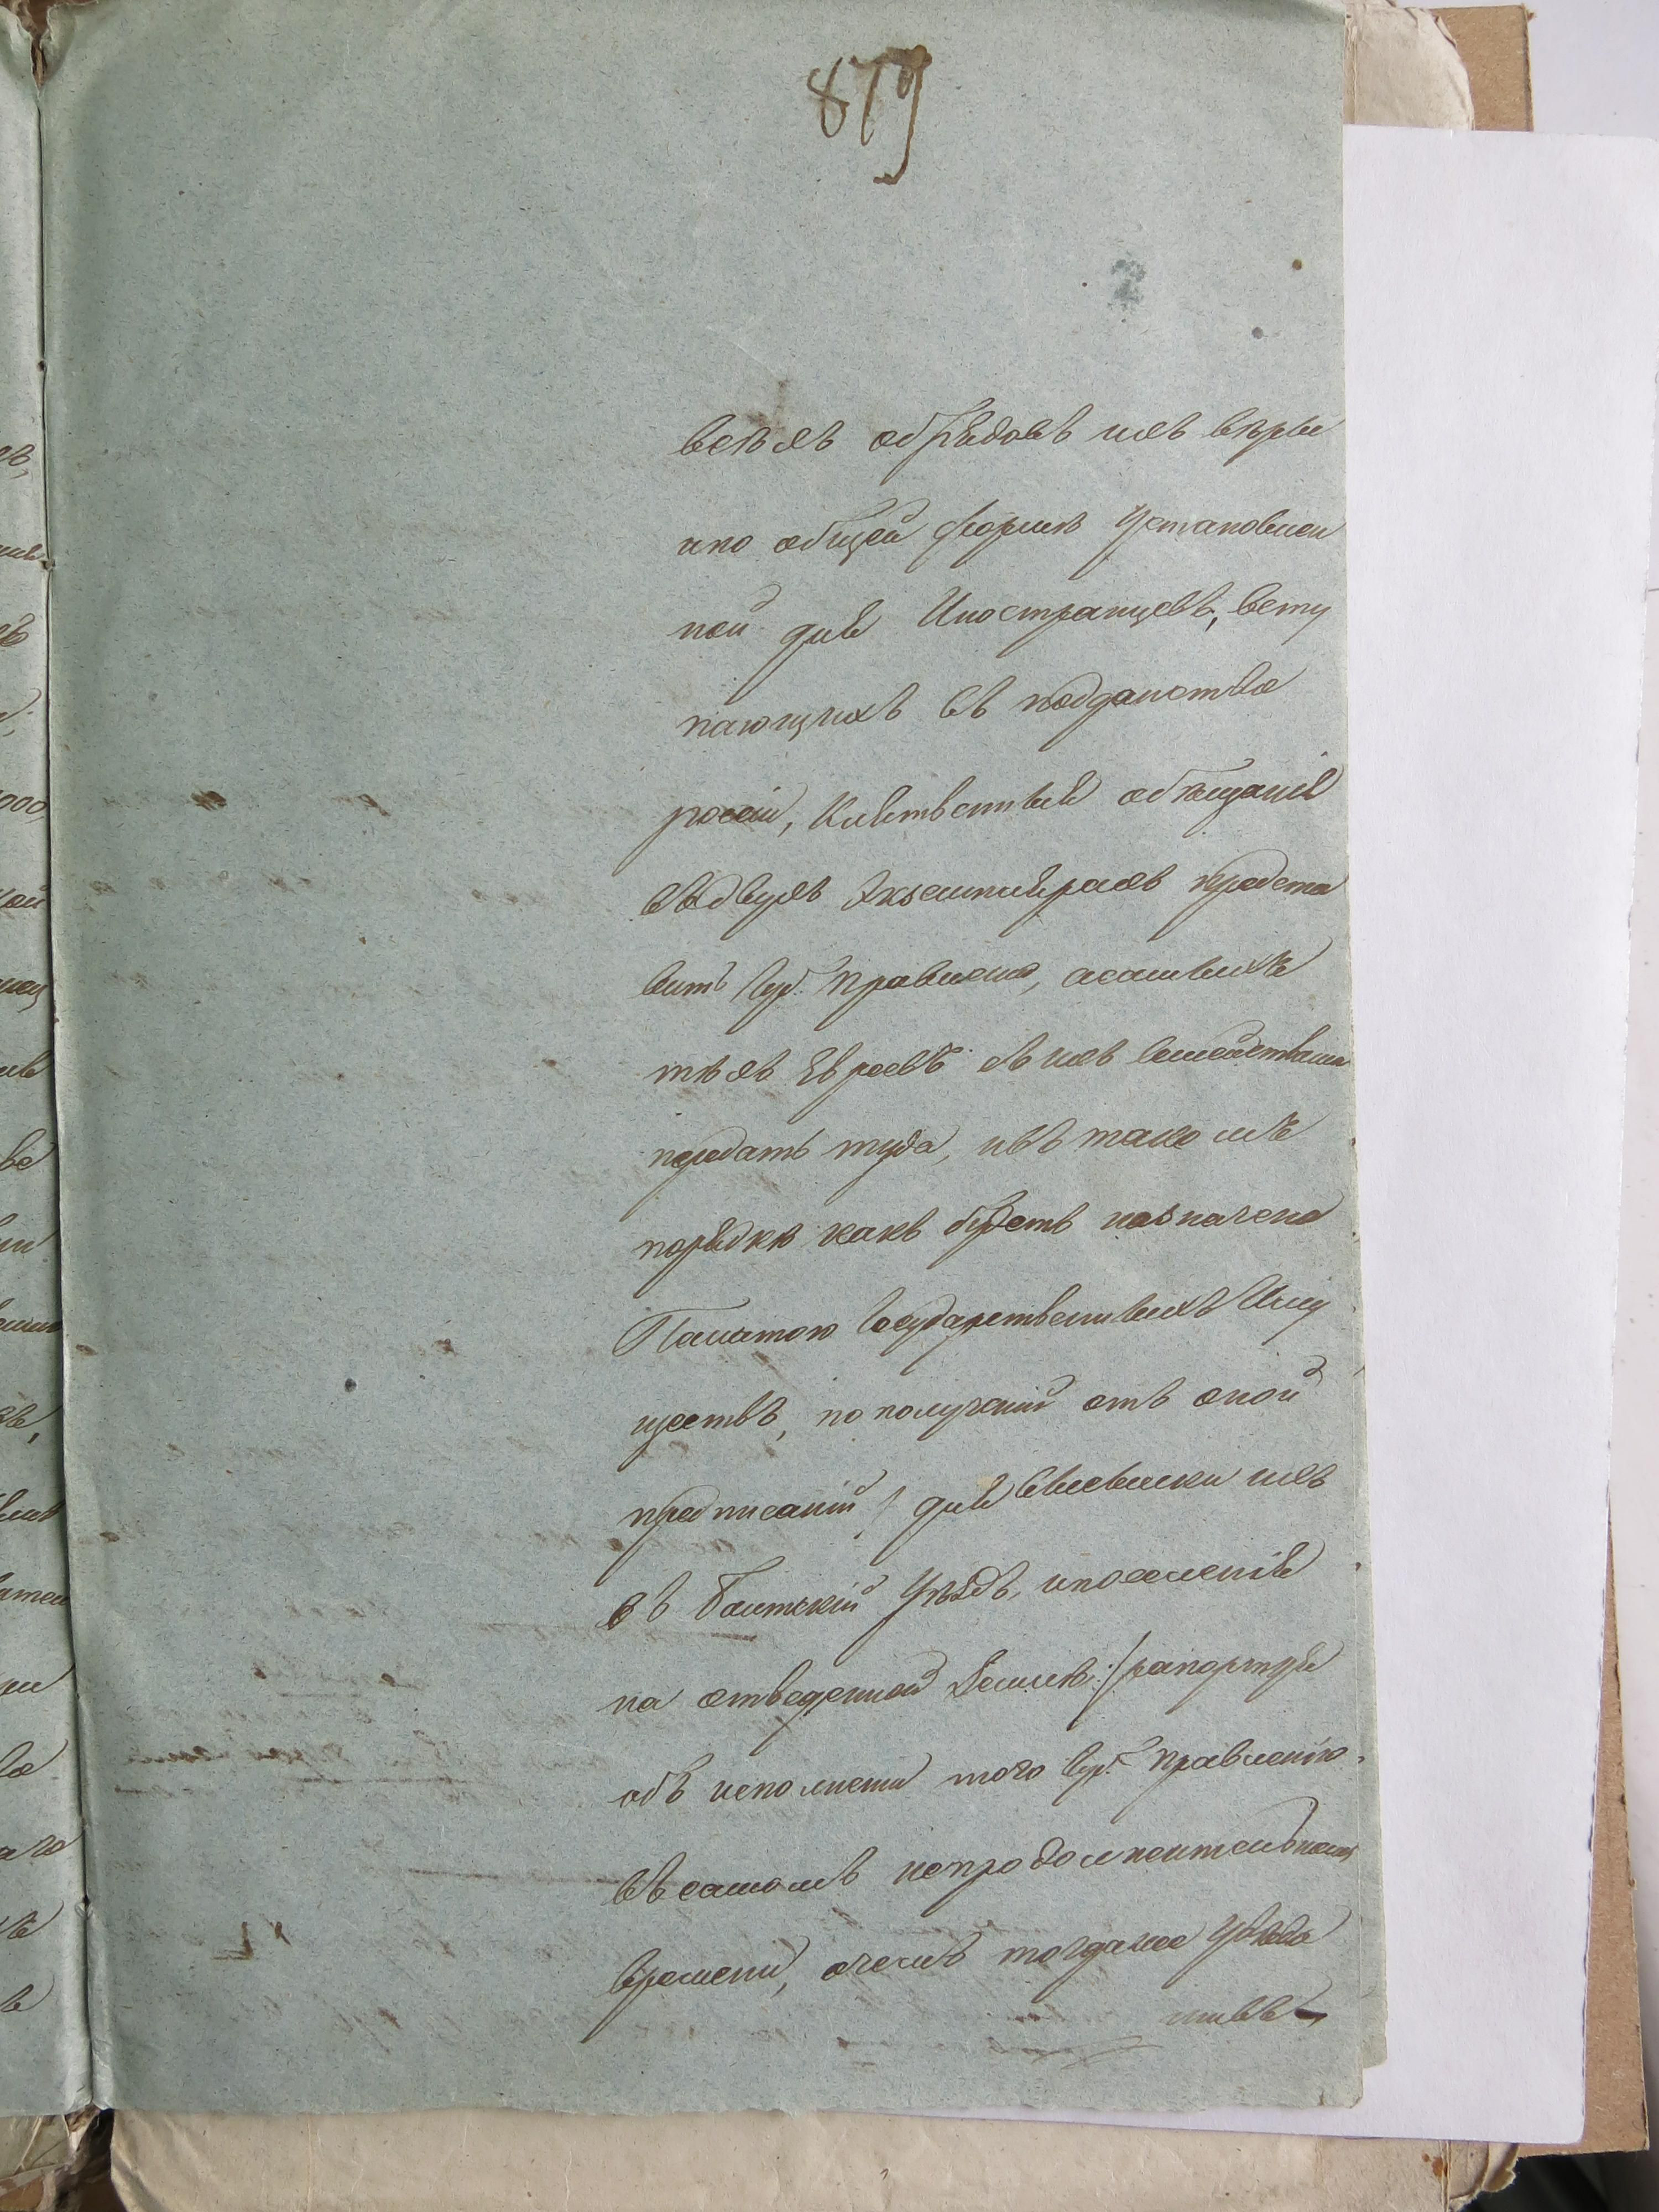 879
всѣхъ обрядовъ ихъ вѣры
ипо общей формѣ установлен
ной для Иностранцевъ, всту
пающихъ въ подданство
россіи, Клятвенныя обѣщанія
въ двухъ Экземплярахъ предста
вить Губ. Правленію, асамыхъ
тѣхъ Евреевъ съ ихъ семействами
передать туда, ивъ такомъ
порядкѣ какъ будетъ назначено
Палатою Государственныхъ Иму
ществъ, пополученіи отъ оной
предписаній / для высылки ихъ
въ Балтскій Уѣздъ, ипоселенія
на отведенной Землѣ:/ рапортуя
объ исполнении того Губ. Правленію
въ самомъ непродолжительномъ
времени, очемъ тогдаже увѣдо
мивъ